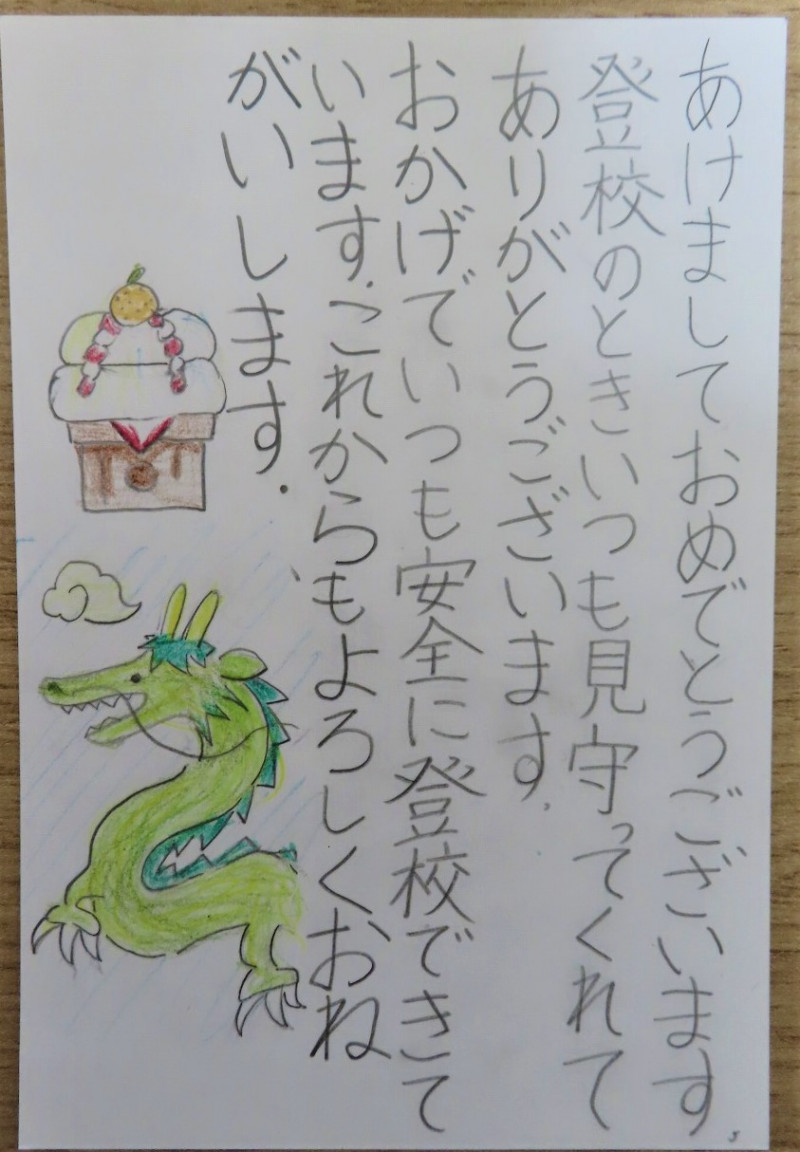 あけましておめでとうございます
登校のときいつも見守ってくれて
ありがとうございます.
おかげでいつも安全に登校できて
います.これからもよろしくおね
がいします.